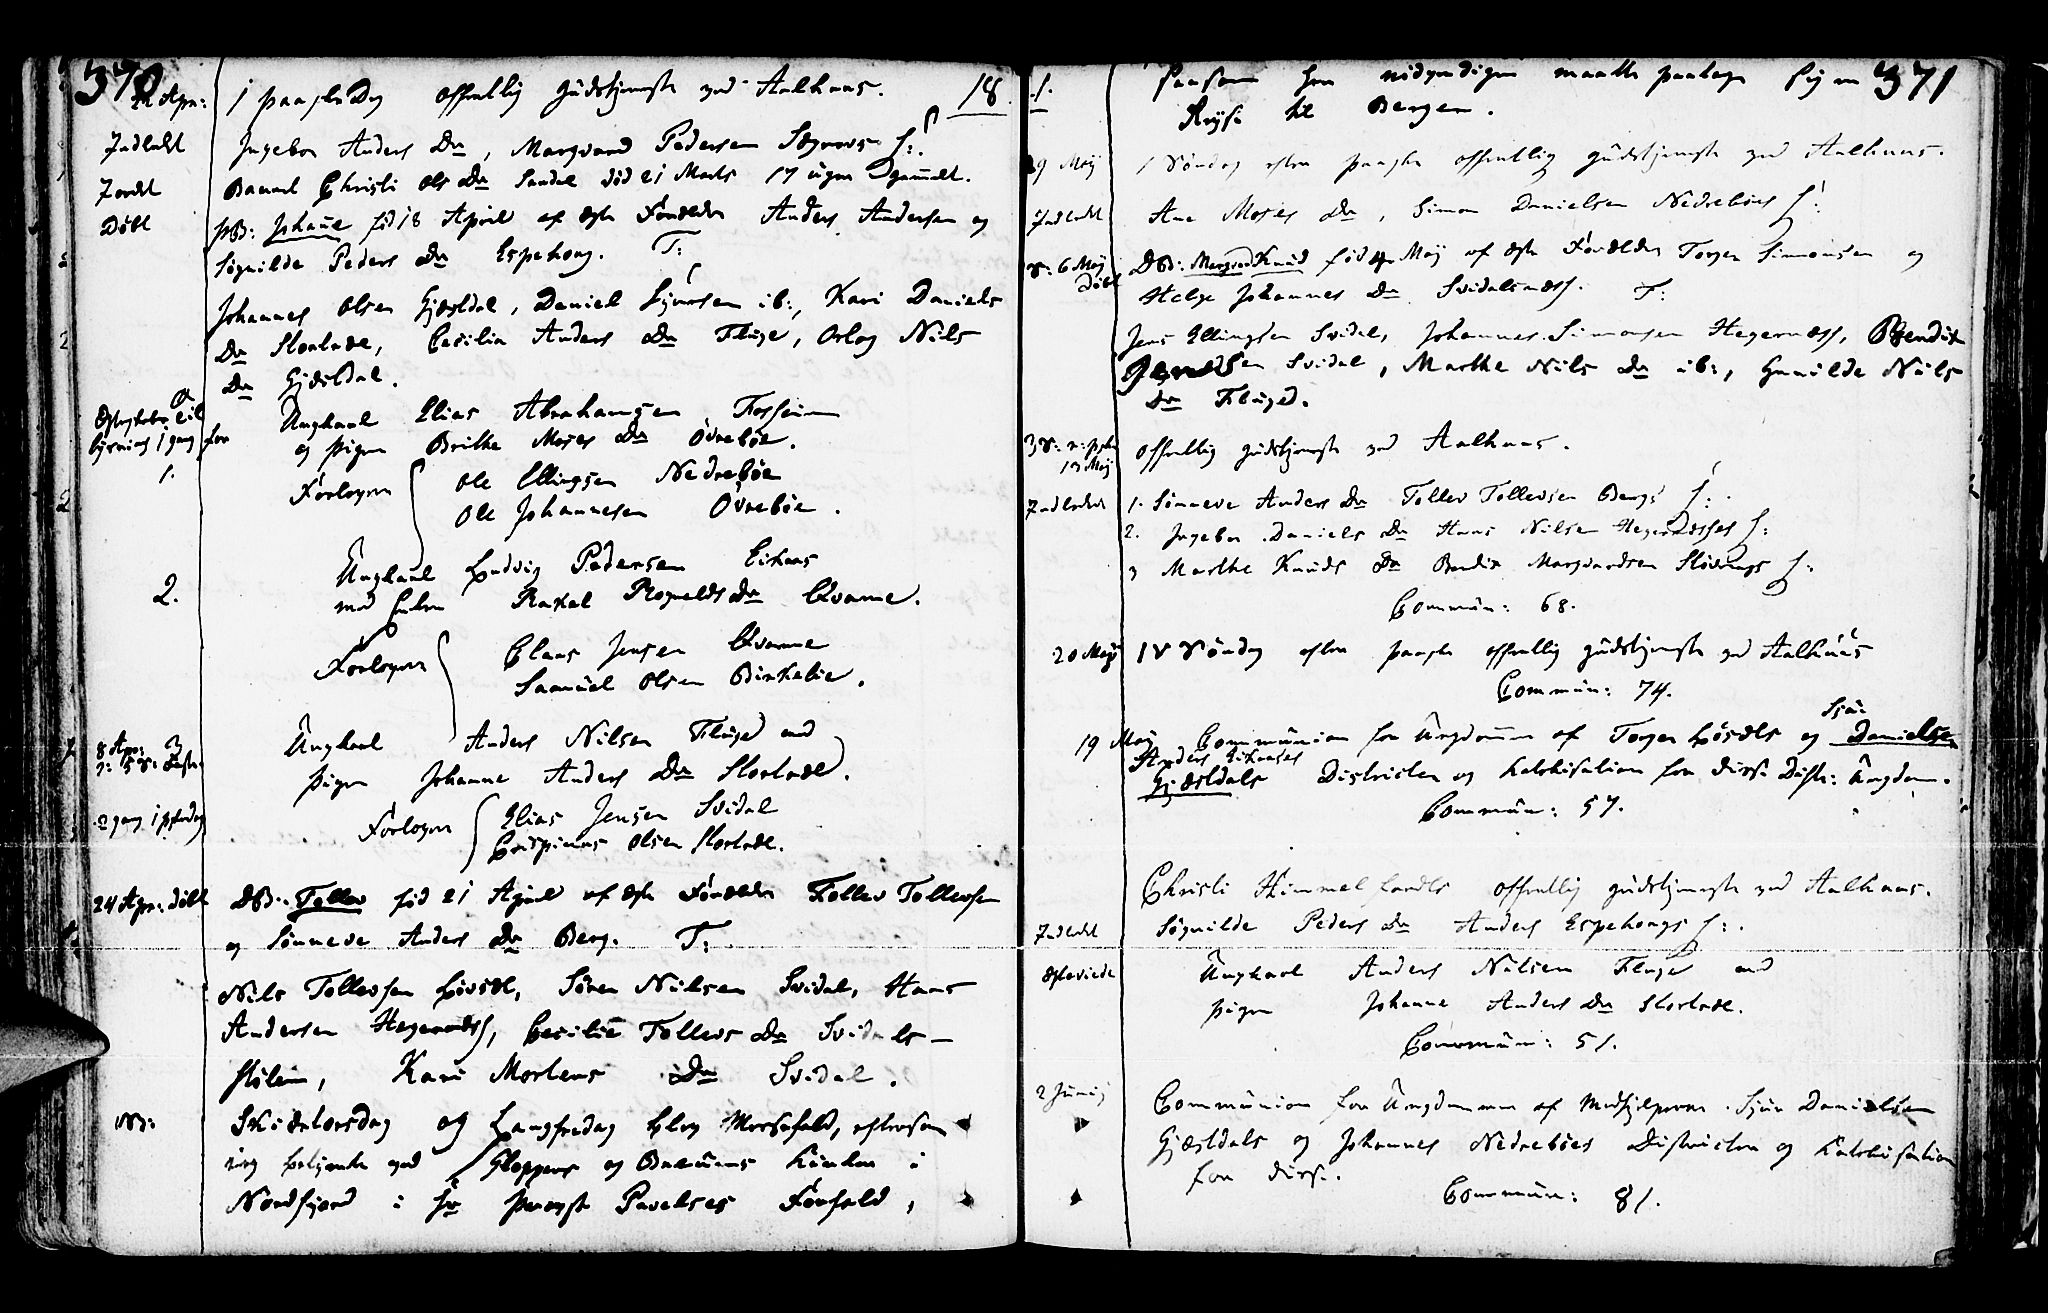 370
22 Apr: 1 paaske Dag offentlig Gudstjeneste ved Aalhuus. 18
Indledt Ingebor Anders Dr, Margvard Pedersen Sægrovs H:.
Jordet Barnet Christi Ols Dr Sandal død 21 Marts 17 uger gammelt.
Døbt Johanne fød 18 April af Ægte Forældre Anders Andersen og
Søgnilde Peders Dr Espehoug. T:
Johannes Olsen Gjæsdal, Daniel Sjursen ib:, Kari Daniels
Dr Storlade, Cecilia Anders Dr Fluge, Orlog Nils
Dr Gjæsdal.
lysning 1 gang for Ungkarl Elias Abrahamsen Fossheim
og pigen Brithe Moses Dr Øvrebøe.
1. Forlovere Ole Ellingsen Nedrebøe
Ole Johannesen Øvrebøe.
2. Ungkarl Ludvig Pedersen Eikaas
med Enken Rakel Rognalds Dr Qvamme.
Forlovere Claus Jensen Qvamme
Samuel Olsen Birkelie.
3 Ungkarl Anders Nilsen Fluge med
8 Apr:
pigen Johanne Anders Dr Storlade.
2 gang 1 Forlovere Elias Jensen Svidal
Crispinus Olsen Storlade.
24 Apr: døbt DB: Tollev fød 21 April af Ægte Forældre Tollev Tollevsen
og Sønneve Anders Dr Berg. T:
Nils Tollevsen Høisæt, Søren Nilsen Svidal, Hans
Andersen Hegrenæss, Cecilie Tollevs Dr Svidals-
stølen, Kari Mortens Dr Svidal.
NB: Skiærtorsdag og Langfredag blev Messefald, eftersom
jeg betjente ved Gloppens og Breums Kirker i
Nordfjord i Hr Provst Pavelses Forfald,
1. saasom han nødvendigen maatte paatage sig en 371
Reyse til Bergen.
29 1 Søndag efter paaske offentlig gudstjeneste ved Aalhuus.
Indledt Ane Moses Dr, Simon Danielsen Nedrebøes H:
6 Maj Døbt DB: Margvard Knud fød 4 Maj af Ægte Forældre Torger Simonsen og
Helge Johannes Dr Svidalsnæss. T:
Jens Ellingsen Svidal, Johannes Simonsen Hegrenæss, Bendix
Jensen Svidal, Marthe Nils Dr ib:, Gunilde Nils
Dr Fluge.
3 S: e: paaske 13 Maj offentlig gudstjeneste ved Aalhuus.
Indledede 1. Sønneve Anders Dr Tollev Tollevsen Bergs H:.
2. Ingebor Daniels Dr Hans Nilsen Hegrenæsses H:
3 Marthe Knuds Dr Bendix Margvardsen Støvrings H:
Commun: 68.
20 Maj IV Søndag efter paaske offentlig gudstjeneste ved Aalhuus
Commun: 74.
Sjur
19 Maj Communion for Ungdommen af Torger Høisæts og Danielsen
Anders Eikaases
Gjæsdals Districter og Katekisation for disse Distr: Ungdom.
Commun: 57.
Christi Himmelfarts offentlig gudstjeneste ved Aalhuus.
Indledt Søgnilde Peders Dr Anders Espehougs H:.
Ægteviede Ungkarl Anders Nilsen Fluge med
pigen Johanne Anders Dr Storlade.
Commun: 51.
2 Junij Communion for Ungdommen af Medhjelperne Sjur Danielsen
Gjæsdals og Johannes Nedrebøes Districter og Katekisation
for disse.
Commun: 81.